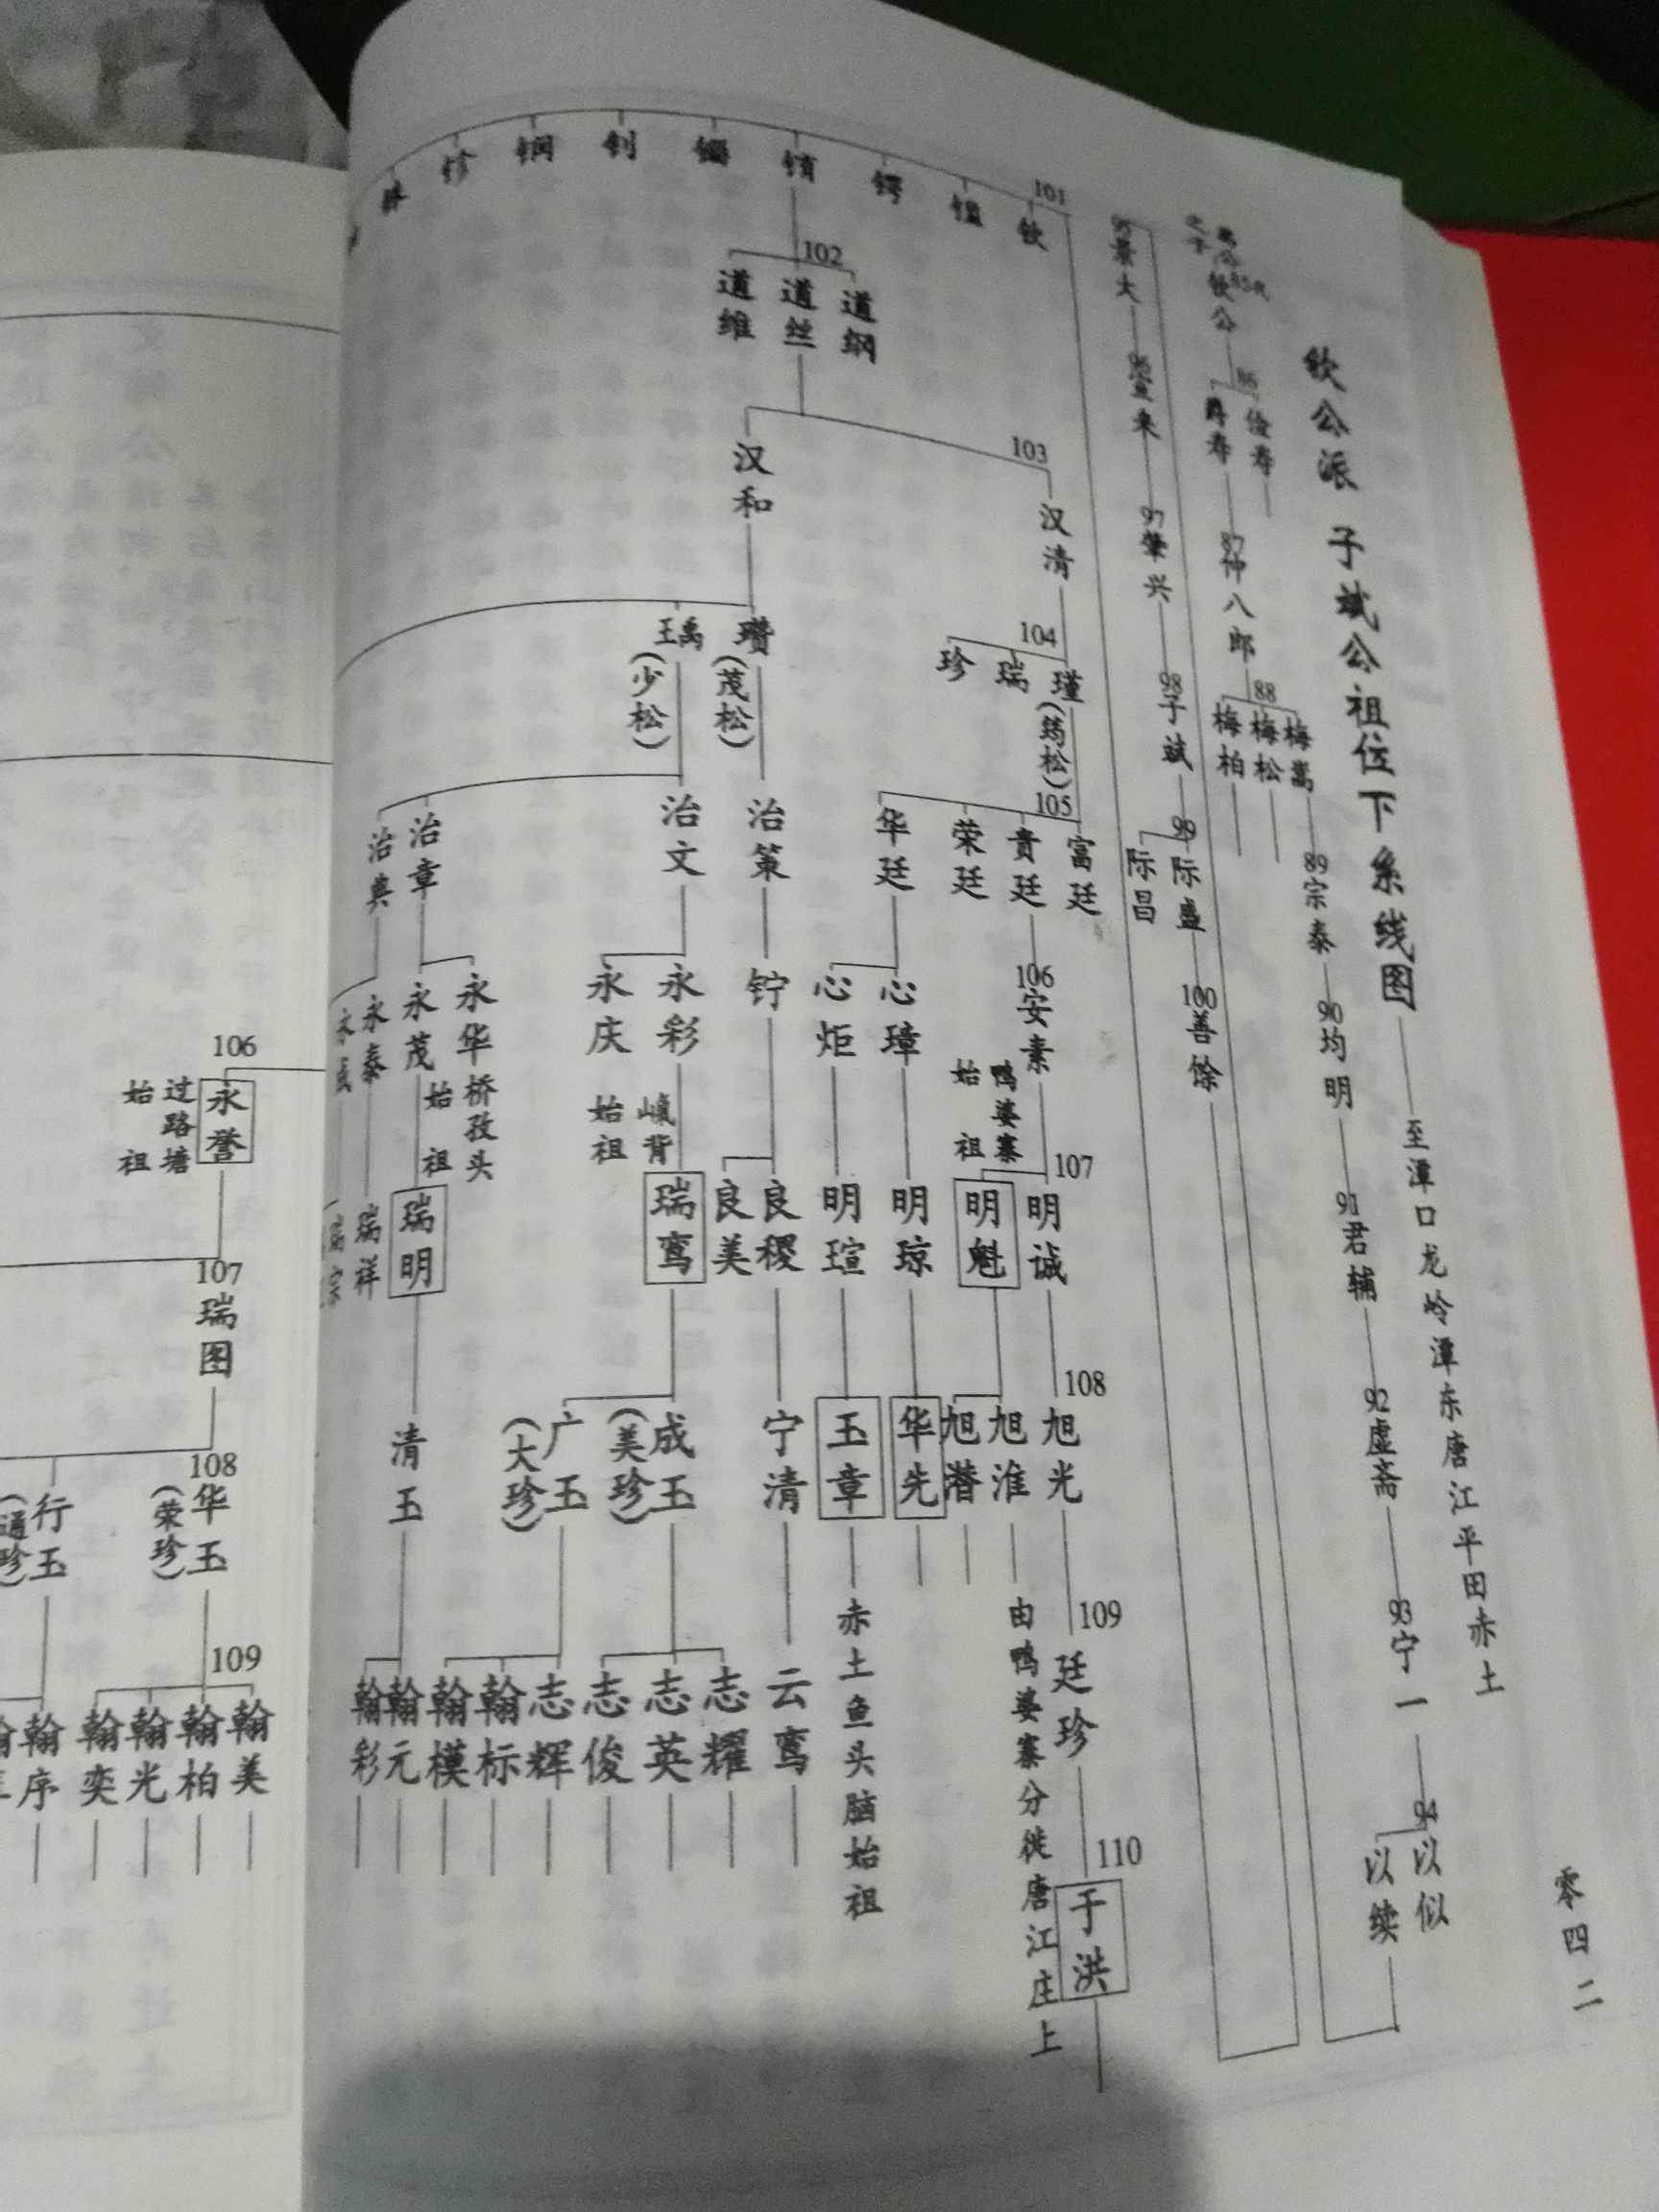 钦公派 子斌公祖位下系线图
至潭口龙岭潭东唐江平田赤土
零四二
之子
85代
钦公
86
俊寿
爵寿
87
仲八郎
88
梅嵩
梅松
梅柏
89
宗泰
90
均明
91
君辅
92
虚斋
93
宁一
94
以似
以续
95
景大
96
壹来
97
肇兴
98
子斌
99
际盛
际昌
100
善馀
101
钦
锷
钊
102
道纲
道丝
道维
103
汉清
汉和
104
瑾
(筠松)
瑞
珍
瓒
(茂松)
王禹
(少松)
105
富廷
贵廷
荣廷
华廷
治策
治文
治章
治典
106
安素
心璋
心炬
铲
永彩
永庆
永华
永茂
永泰
鸭婆寨
始祖
背
始祖
桥孜头
始祖
107
明诚
明魁
明琼
明瑄
良稷
良美
瑞鸾
瑞明
瑞祥
108
旭光
旭淮
旭潜
华先
玉章
宁清
成玉
(美珍)
广玉
(大珍)
清玉
109
廷珍
由鸭婆寨分徙唐江庄上
赤土鱼头脑始祖
云鸾
志耀
志英
志俊
志辉
翰标
翰模
翰元
翰彩
110
于洪
106
永誉
过路塘
始祖
107
瑞图
108
华玉
(荣珍)
行玉
(通珍)
109
翰美
翰柏
翰光
翰奕
翰序